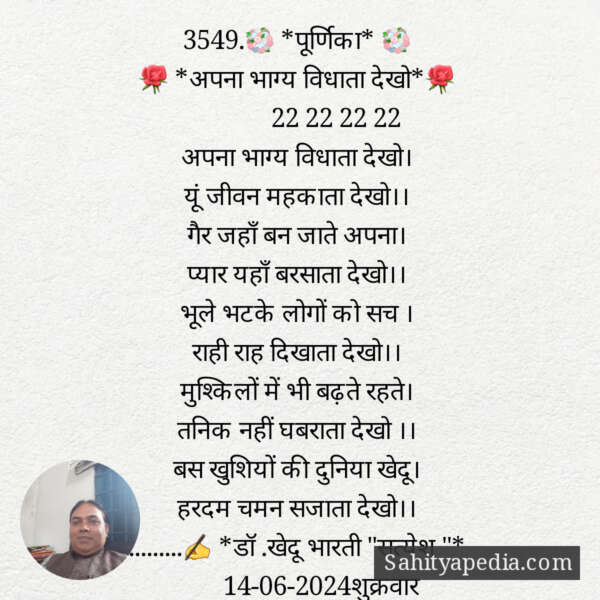 3549.💮 *पूर्णिका* 💮
🌹 *अपना भाग्य विधाता देखो*🌹
22 22 22 22
अपना भाग्य विधाता देखो।
यूं जीवन महकाता देखो।।
गैर जहाँ बन जाते अपना।
प्यार यहाँ बरसाता देखो।।
भूले भटके लोगों को सच ।
राही राह दिखाता देखो।।
मुश्किलों में भी बढ़ते रहते।
तनिक नहीं घबराता देखो ।।
बस खुशियों की दुनिया खेदू।
हरदम चमन सजाता देखो।।
.........✍ *डॉ .खेदू भारती "सत्येश "*
14-06-2024शुक्रवार
Sahityapedia.com